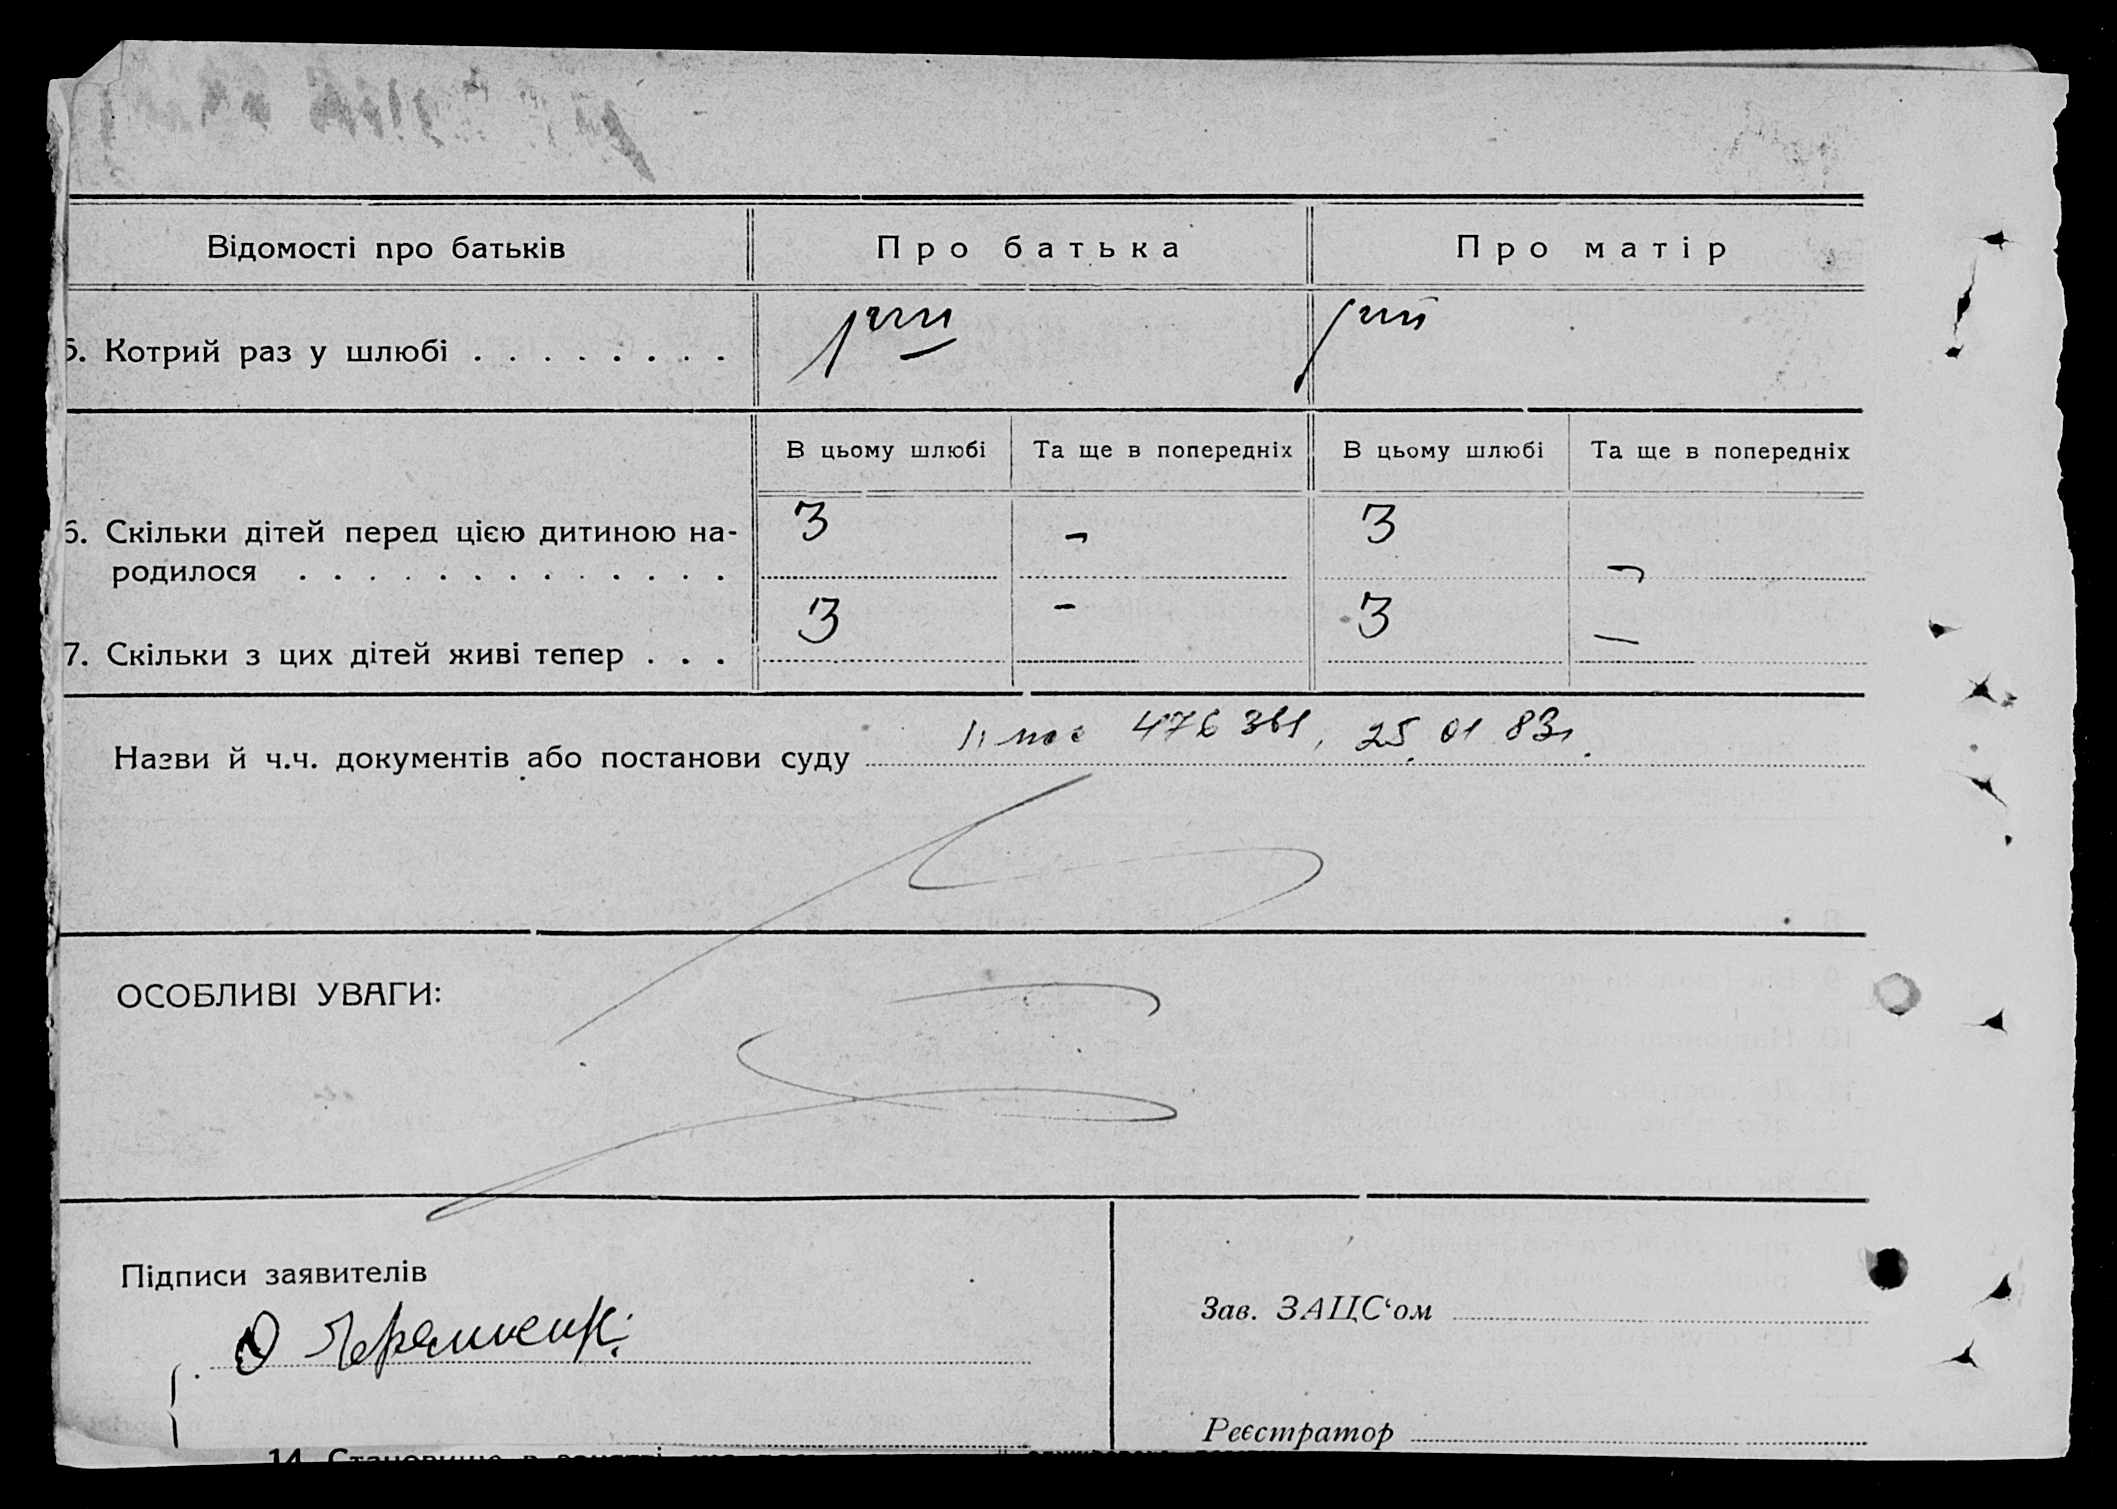 Відомості про батьків
Про батька
Про матір
5. Котрий раз у шлюбі . . . . . . . .
В цьому шлюбі
Та ще в попередніх
В цьому шлюбі
Та ще в попередніх
6. Скільки дітей перед цією дитиною на-
родилося . . . . . . . . . . . . . .
3
-
3
-
7. Скільки з цих дітей живі тепер . . .
3
-
3
-
Назви й ч.ч. документів або постанови суду 476 361, 25 01 83г.
ОСОБЛИВІ УВАГИ:
Підписи заявителів
Зав. ЗАЦС‘ом
Реєстратор